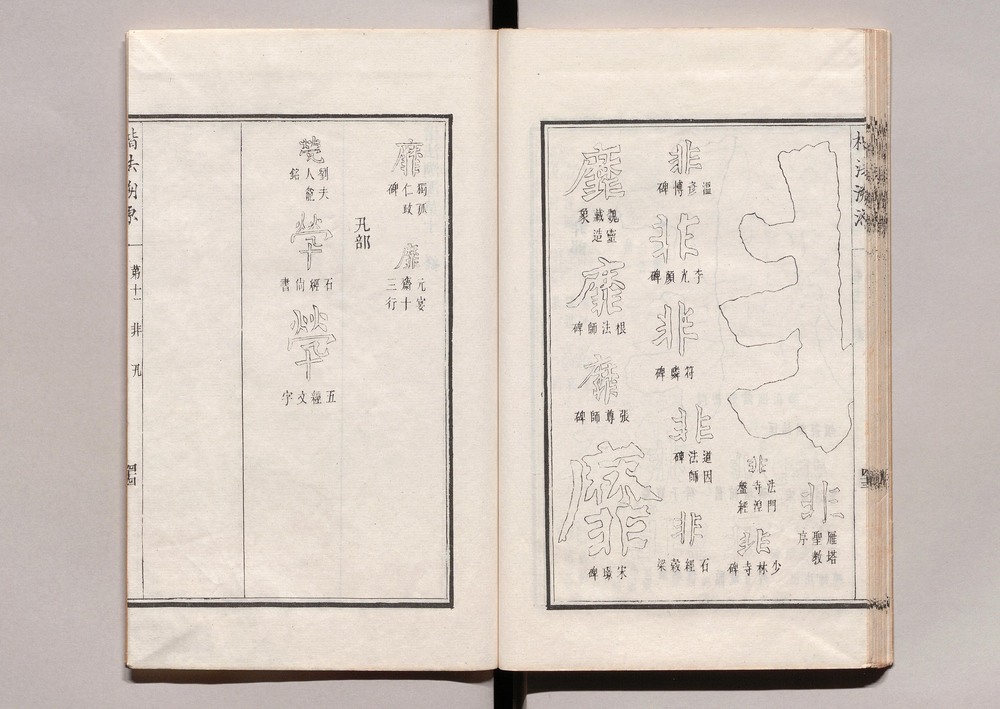 非
雁塔聖教序
非
法門寺湼盤經
非
少林寺碑
非
溫彥博碑
非
李光顏碑
非
符璘碑
非
道因法師碑
非
石經穀梁
靡
魏靈藏造象
靡
根法師碑
靡
張尊師碑
靡
宋璟碑
靡
獨孤仁政碑
靡
元宴齋十三行
卂部
煢
劉夫人龕銘
煢
石經尚書
煢
五經文字
楷法溯原 第十一 非 卂